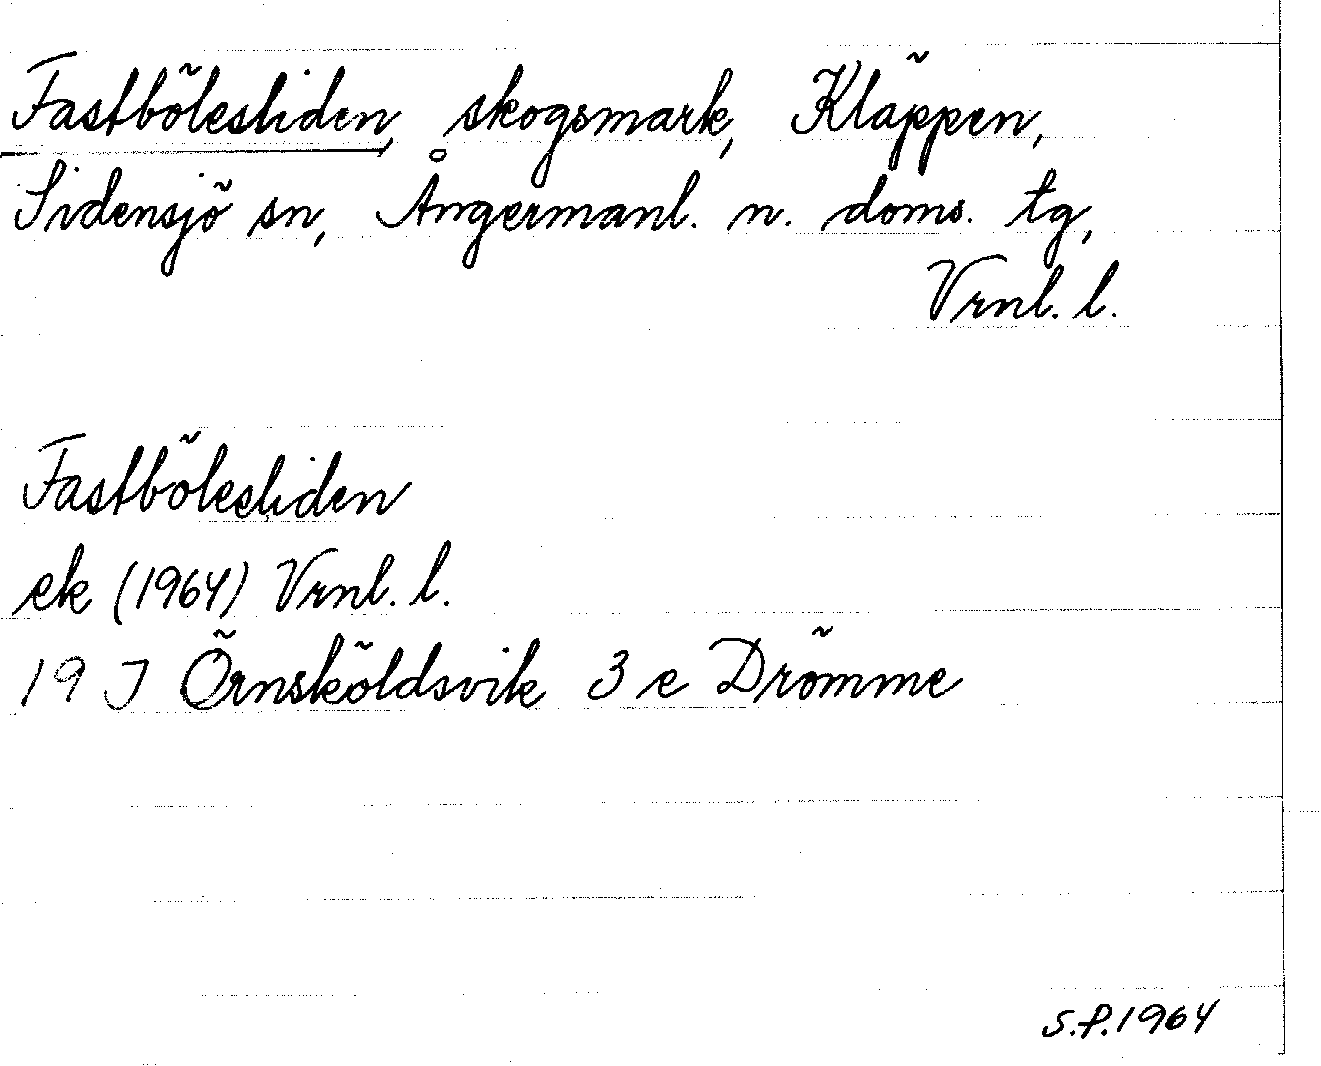 Fastbölesliden, skogsmark, Kläppen,
Sidensjö sn, Ångermanl. n. doms. tg,
Vrnl. l.
Fastbölesliden
ek (1964) Vrnl. l.
19 J Örnsköldsvik 3 e Drömme
S.P. 1964